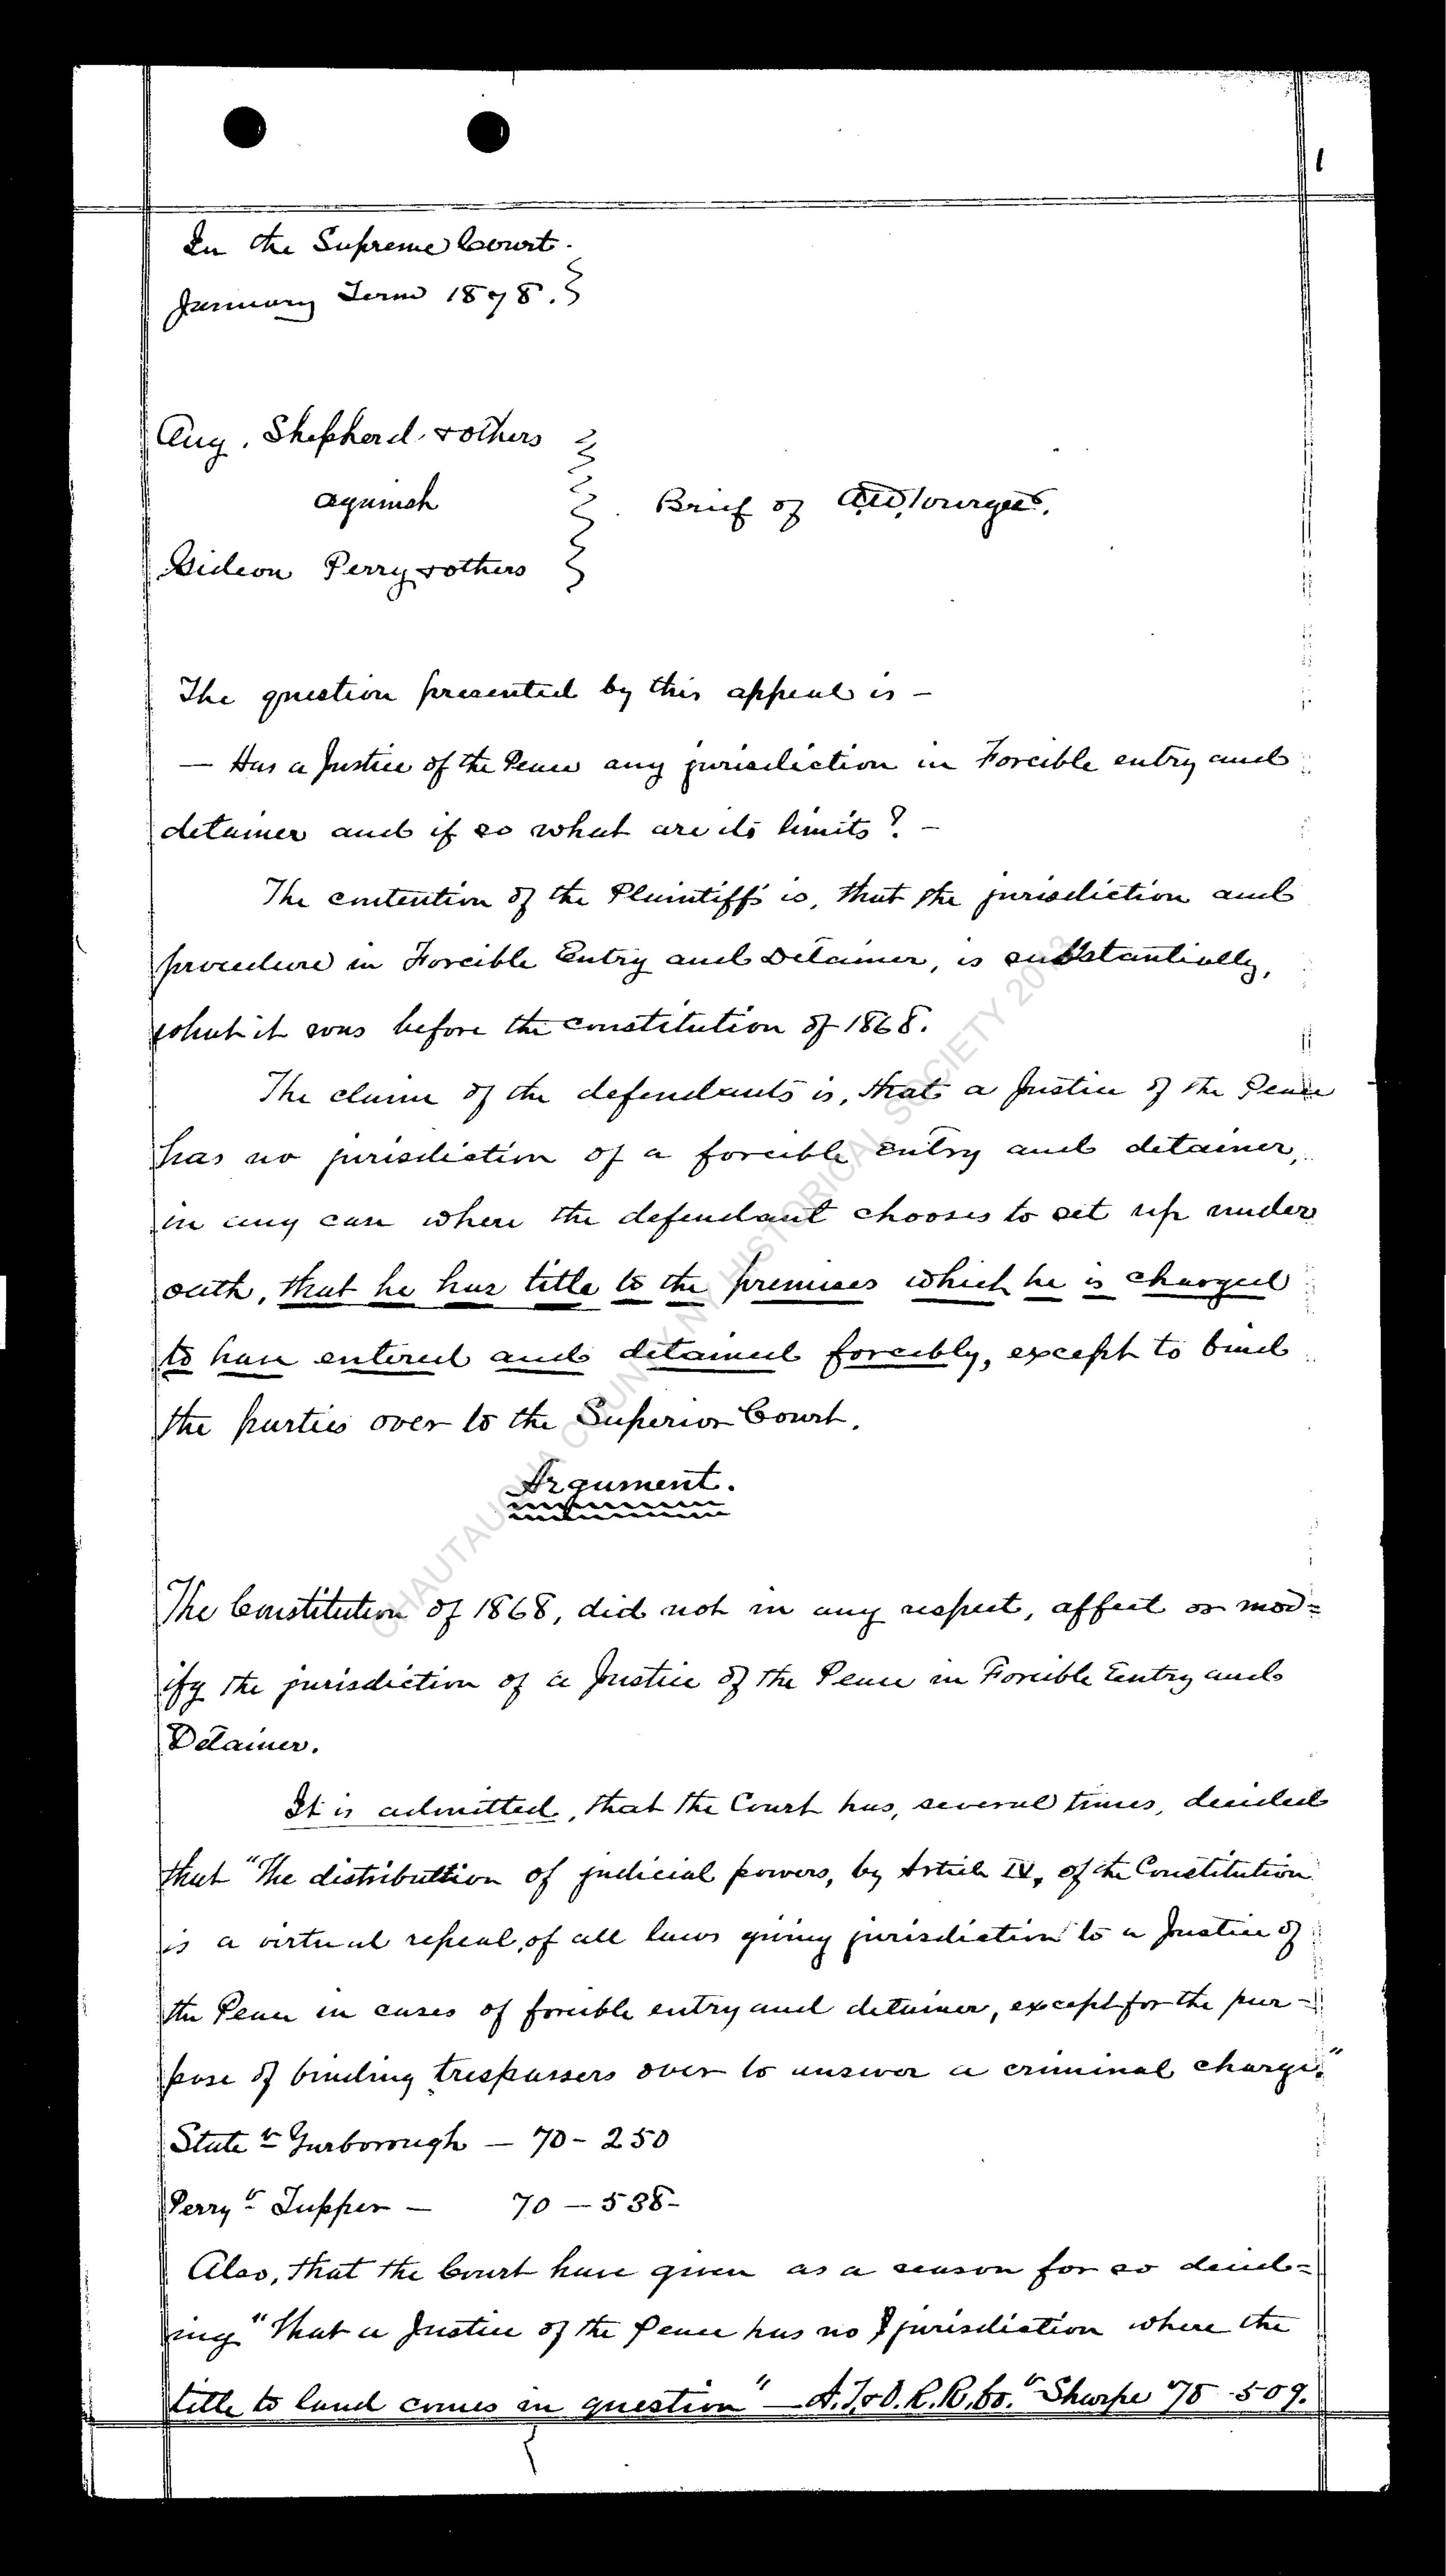 1
In the Supreme Court.
January Term 1878.
Aug. Shepherd & others
against
Brief of A.W. Tourgee.
Gideon Perry & others
The question presented by this appeal is –
– Has a Justice of the Peace any jurisdiction in Forcible entry and
detainer and if so what are its limits? –
The contention of the Plaintiffs is, that the jurisdiction and
procedure in Forcible Entry and Detainer, is substantially,
what it was before the constitution of 1868.
The claim of the defendants is, that a Justice of the Peace
has no jurisdiction of a forcible entry and detainer,
in any case where the defendant chooses to set up under
oath, that he has title to the premises which he is charged
to have entered and detained forcibly, except to bind
the parties over to the Superior Court.
Argument.
The Constitution of 1868, did not in any respect, affect or mod=
ify the jurisdiction of a Justice of the Peace in Forcible Entry and
Detainer.
It is admitted, that the Court has, several times, decided
that "The distributtion of judicial powers, by Article IV, of the Constitution
is a virtual repeal, of all laws giving jurisdiction to a Justice of
the Peace in cases of forcible entry and detainer, except for the pur-
pose of binding trespassers over to answer a criminal charge."
State v Yarborough – 70 – 250
Perry v Tupper – 70 – 538 –
Also, that the Court have given as a reason for so decid=
ing "That a Justice of the Peace has no jurisdiction where the
title to land comes in question" – A. T. & O. R. R. Co. v Sharpe 70 - 509.
CHAUTAUQUA COUNTY NY HISTORICAL SOCIETY 2013